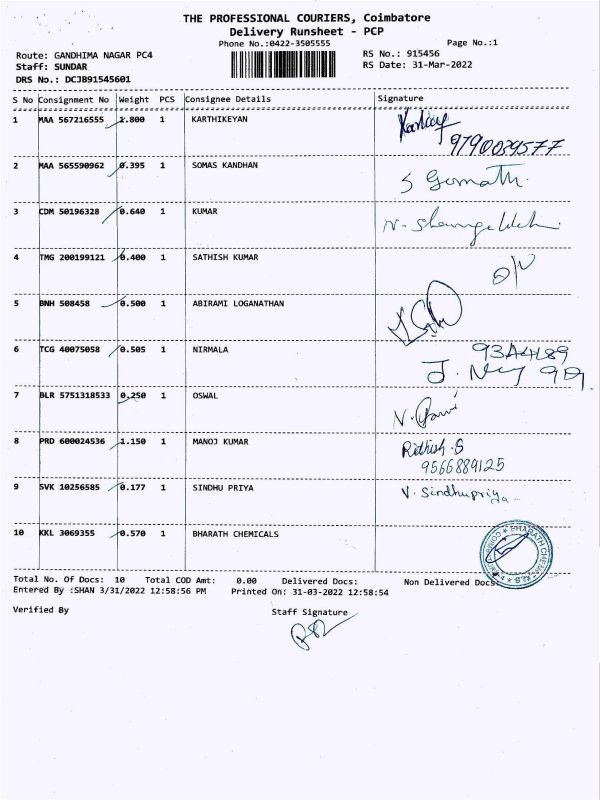 THE PROFESSIONAL COURIERS, Coimbatore
Delivery Runsheet - PCP
Phone No.:0422-3505555
Page No.:1
Route: GANDHIMA NAGAR PC4
RS No.: 915456
Staff: SUNDAR
RS Date: 31-Mar-2022
DRS No.: DCJB91545601
S No Consignment No Weight PCS Consignee Details Signature
1 MAA 567216555 1.800 1 KARTHIKEYAN
9790039577
2 MAA 565590962 0.395 1 SOMAS KANDHAN
S Gomathi
3 CDM 50196328 0.640 1 KUMAR
4 TMG 200199121 0.400 1 SATHISH KUMAR
5 BNH 508458 0.500 1 ABIRAMI LOGANATHAN
6 TCG 40075058 0.505 1 NIRMALA
7 BLR 5751318533 0.250 1 OSWAL
8 PRD 600024536 1.150 1 MANOJ KUMAR Rithish.S
9566889125
9 SVK 10256585 0.177 1 SINDHU PRIYA V. Sindhupriya
10 KKL 3069355 0.570 1 BHARATH CHEMICALS
Total No. Of Docs: 10 Total COD Amt: 0.00 Delivered Docs: Non Delivered Docs:
Entered By :SHAN 3/31/2022 12:58:56 PM Printed On: 31-03-2022 12:58:54
Verified By
Staff Signature